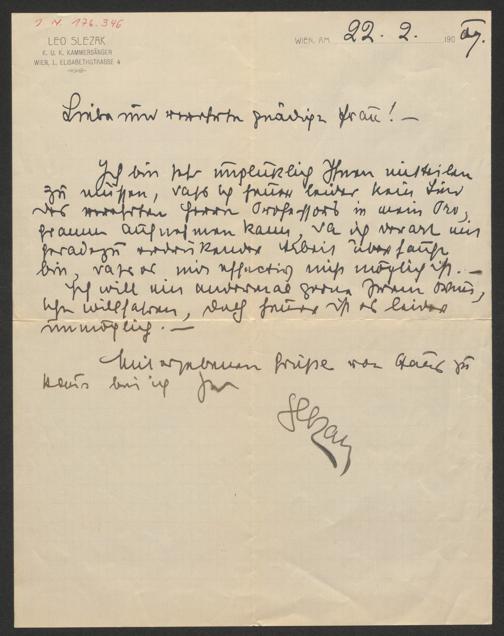 I N 176.346
LEO SLEZAK
K. U. K. KAMMERSÄNGER
WIEN, I., ELISABETHSTRASSE 4
WIEN, AM 22. 2. 190 09.
Liebe und verehrte gnädige Frau! —
Ich bin sehr unglücklich Ihnen mitteilen
zu müssen, dass ich heuer leider kein Lied
des verehrten Herrn Professors in mein Pro,
gramm aufnehmen kann, da ich derart mit
geradezu erdrückender Arbeit überhäuft
bin, dass es mir effectiv nicht möglich ist. —
Ich will ein andermal gerne Ihrem Wun,
sche willfahren, doch heuer ist es leider
unmöglich. —
Mit ergebenen Grüße von Haus zu
Haus bin ich Ihr
Slezak